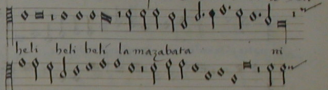 heli heli heli la mazabata ni